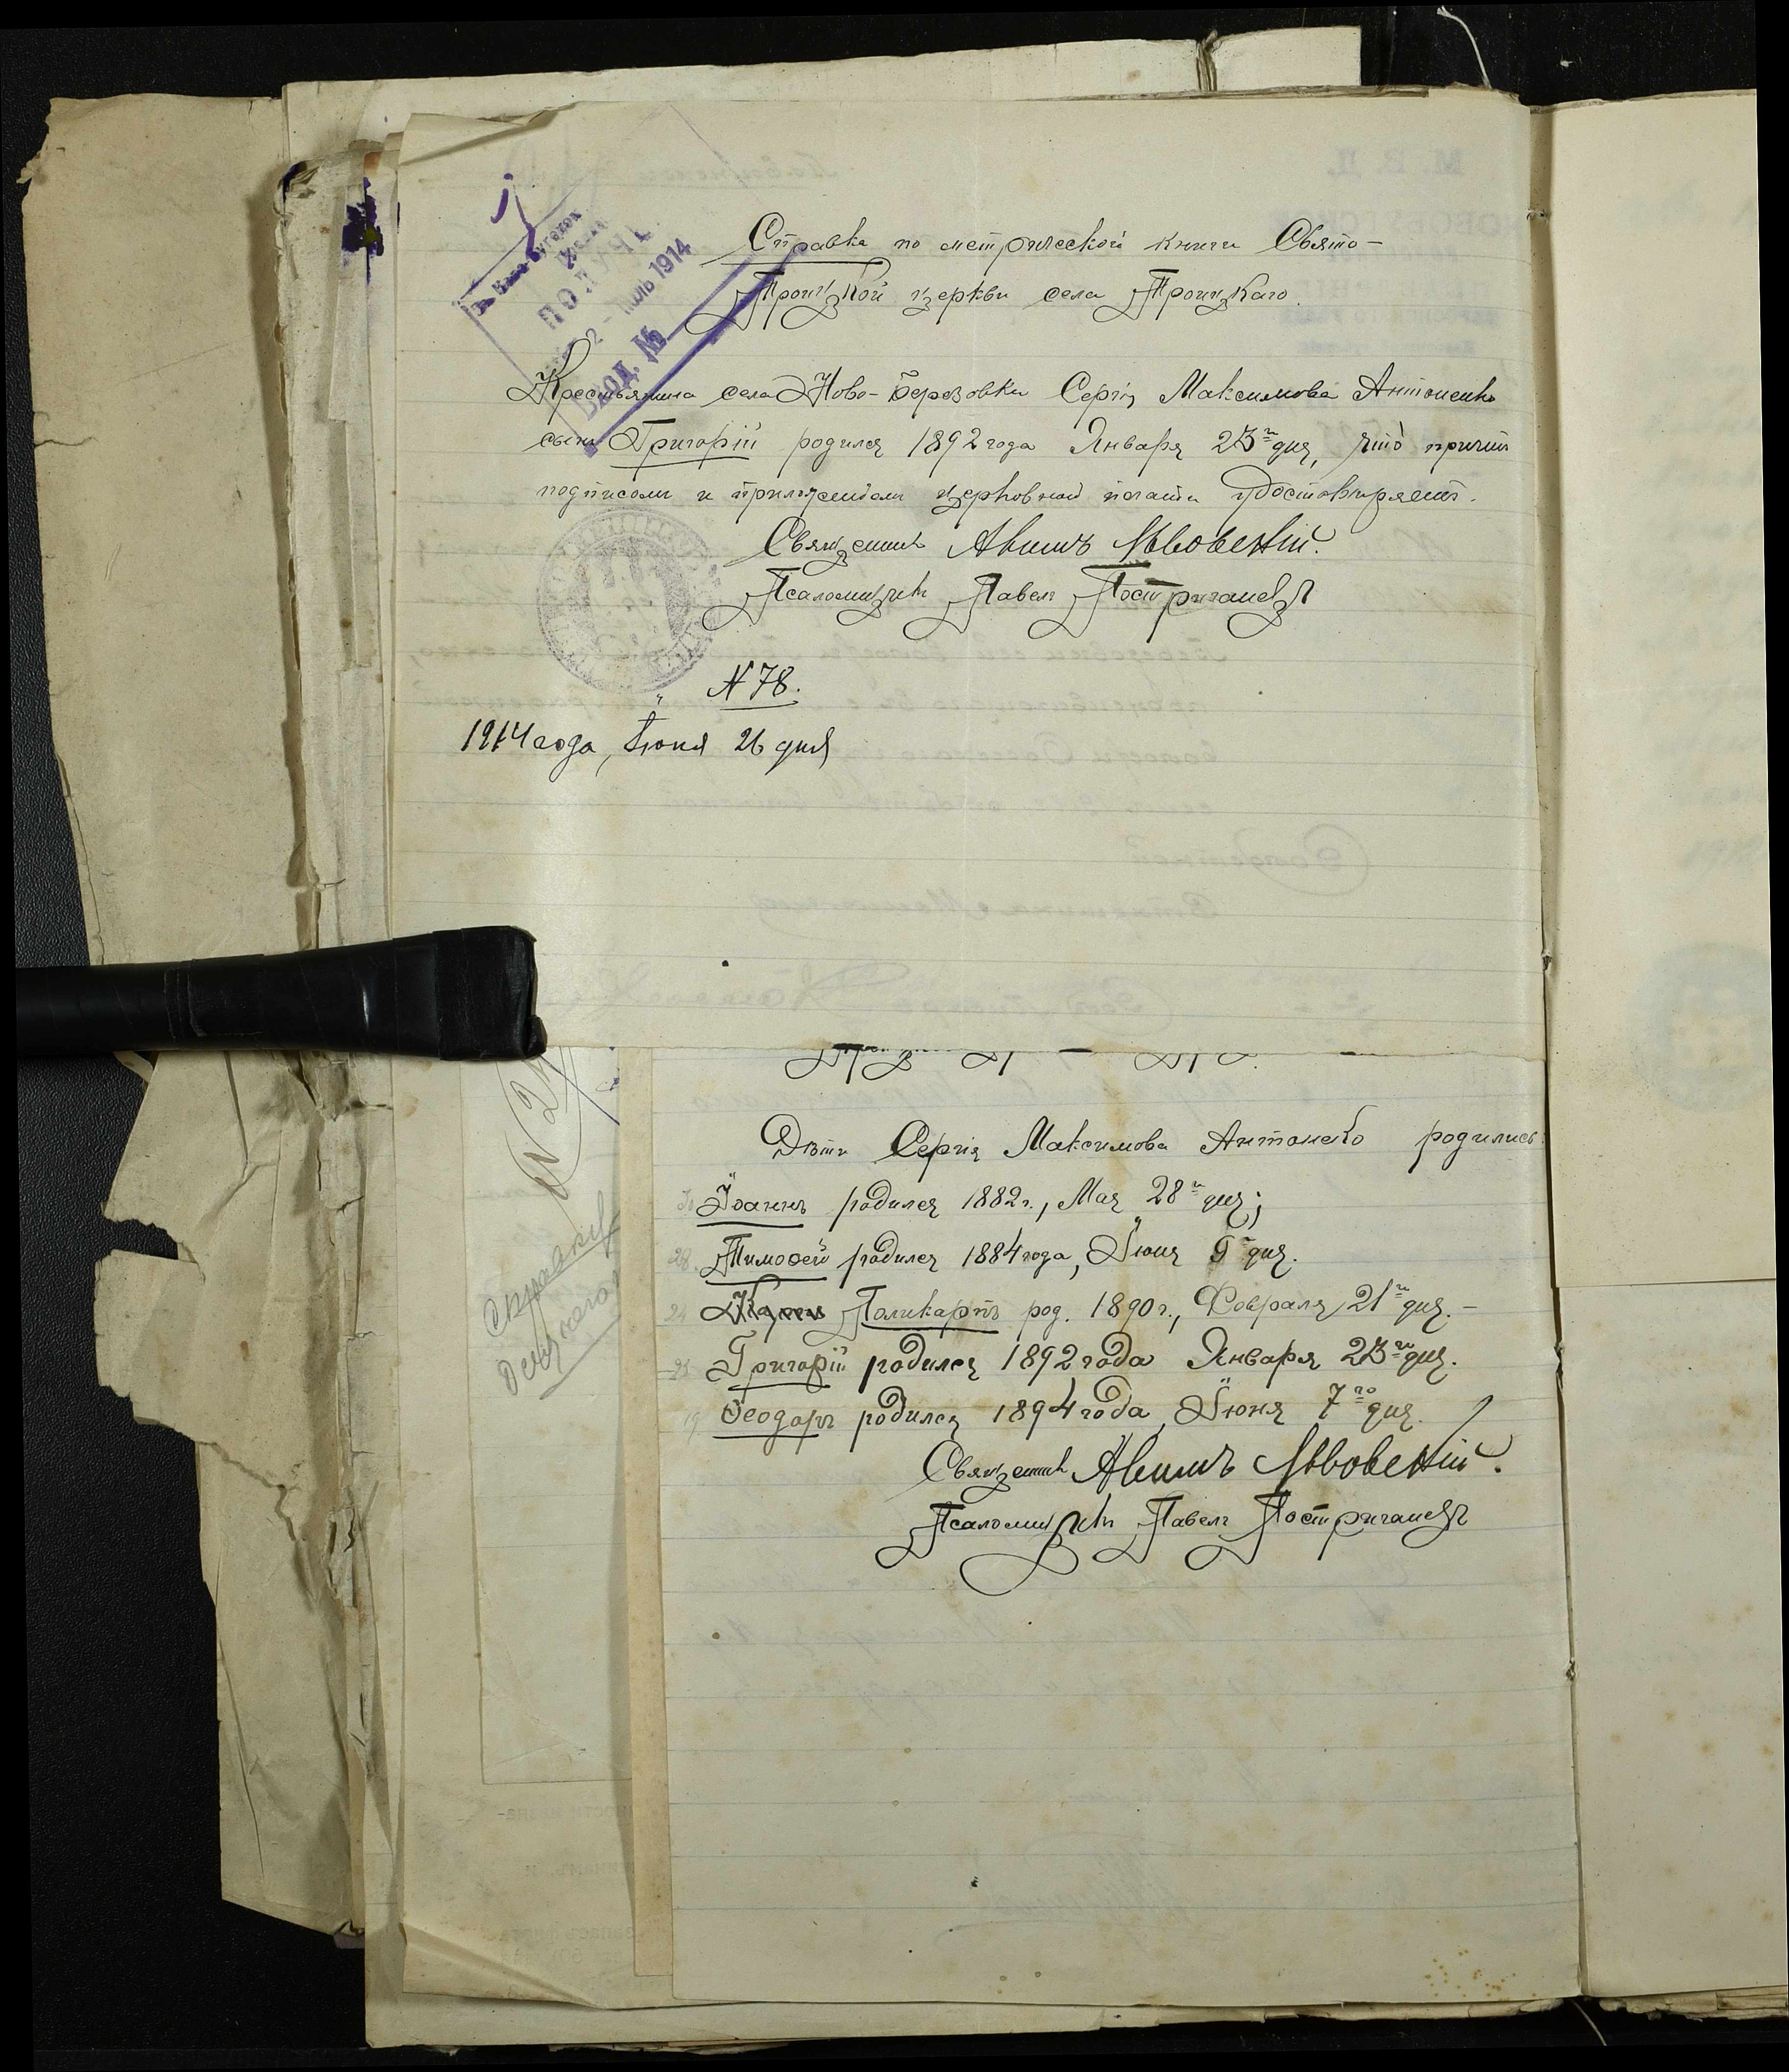 ПОЛУЧ.
2 - ИЮЛЬ 1914
ВХОД. №
Справка по метрической книги Свято-
Троицкой церкви села Троицкаго.
Крестьянина села Ново-Березовки Сергія Максимова Антоненко
сынъ Григорій родился 1892 года Января 23го дня, что причтъ
подписомъ и приложеніемъ церковной печати удостовѣряетъ.
Священникъ Авимъ Львовскій.
Псаломщикъ Павелъ
N 78.
1914 года, Іюня 26 дня
Дѣти Сергія Максимова Антоненко родились:
Іоаннъ родился 1882 г., Мая 28го дня;
28. Тимоѳей родился 1884 года, Іюня 9го дня.
24 Поликарпъ род. 1890 г., Февраля 21го дня. -
Григорій родился 1892 года Января 23го дня.
19. Ѳеодоръ родился 1894 года, Іюня 7го дня.
Священникъ Авимъ Львовскій.
Псаломщикъ Павелъ